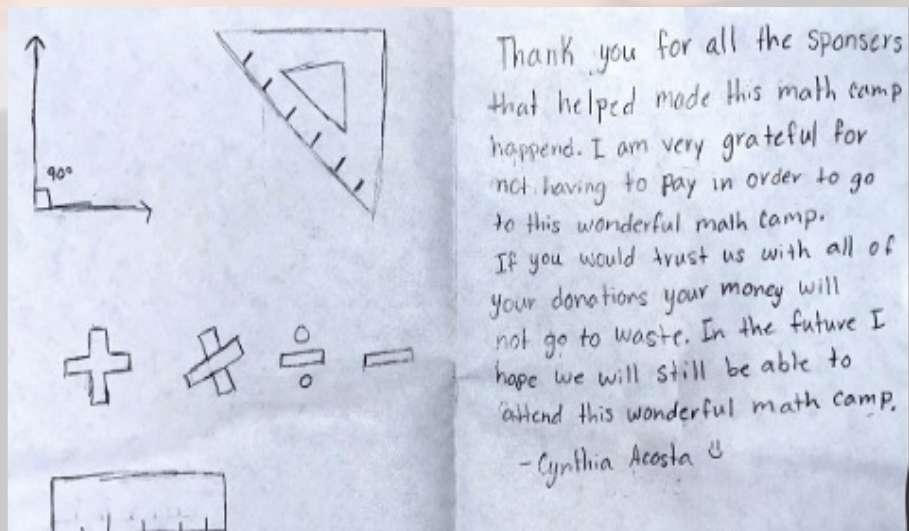 90°
Thank you for all the sponsers
that helped made this math camp
happend. I am very grateful for
not having to pay in order to go
to this wonderful math camp.
If you would trust us with all of
your donations your money will
not go to waste. In the future I
hope we will still be able to
attend this wonderful math camp.
- Cynthia Acosta